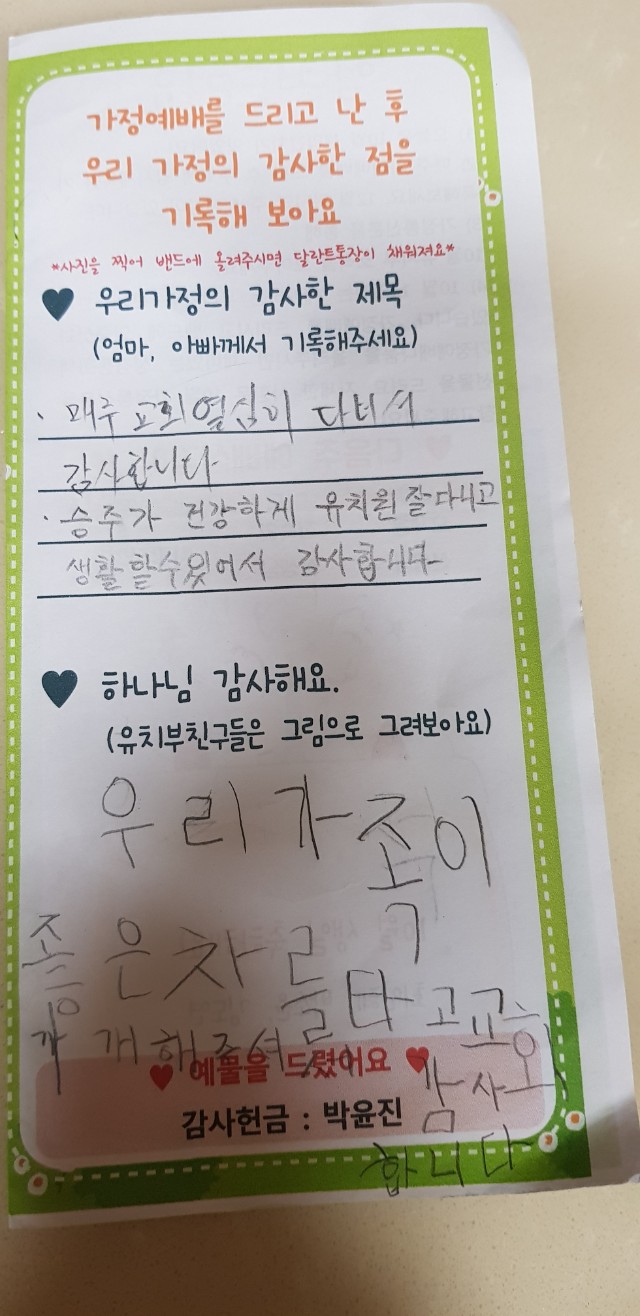 가정예배를 드리고 난 후
우리 가정의 감사한 점을
기록해 보아요
*사진을 찍어 밴드에 올려주시면 달란트통장이 채워져요*
♥ 우리가정의 감사한 제목
(엄마, 아빠께서 기록해주세요)
· 매주 교회 열심히 다녀서
감사합니다
· 승주가 건강하게 유치원 잘다니고
생활 할수있어서 감사합니다
♥ 하나님 감사해요.
(유치부친구들은 그림으로 그려보아요)
우리가족이
좋은차를타고교회
가개해주셔서
감사
합니다
♥ 예물을 드렸어요 ♥
감사헌금 : 박윤진